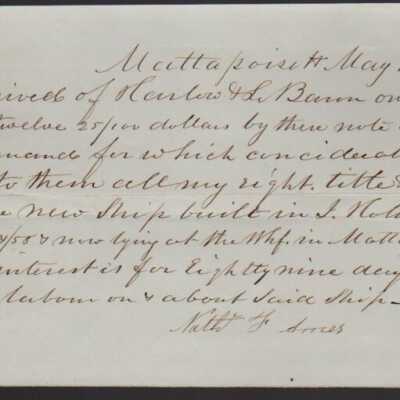 Mattapoisett May
ived of Harlow & Le Baron on
twelve 25/100 dollars by there note
mand for which concideat
to them all my right. title &
e new Ship built in J. Hol
/50 & now lying at the Whf. in Matta
interest is for Eighty nine day
labour on & about Said Ship —
Nathl F Ames